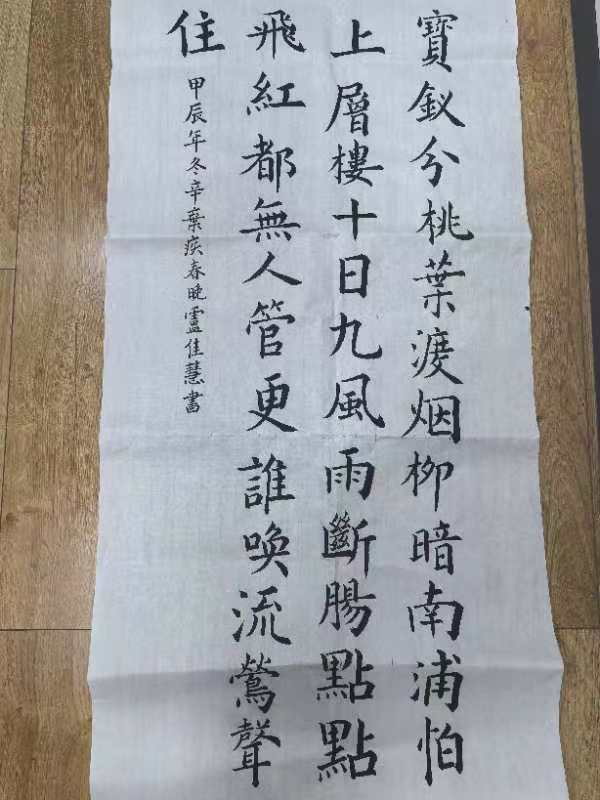 寶釵分桃葉渡烟柳暗南浦怕
上層樓十日九風雨斷腸點點
飛紅都無人管更誰喚流鶯聲
住
甲辰年冬辛棄疾春晚盧佳慧書